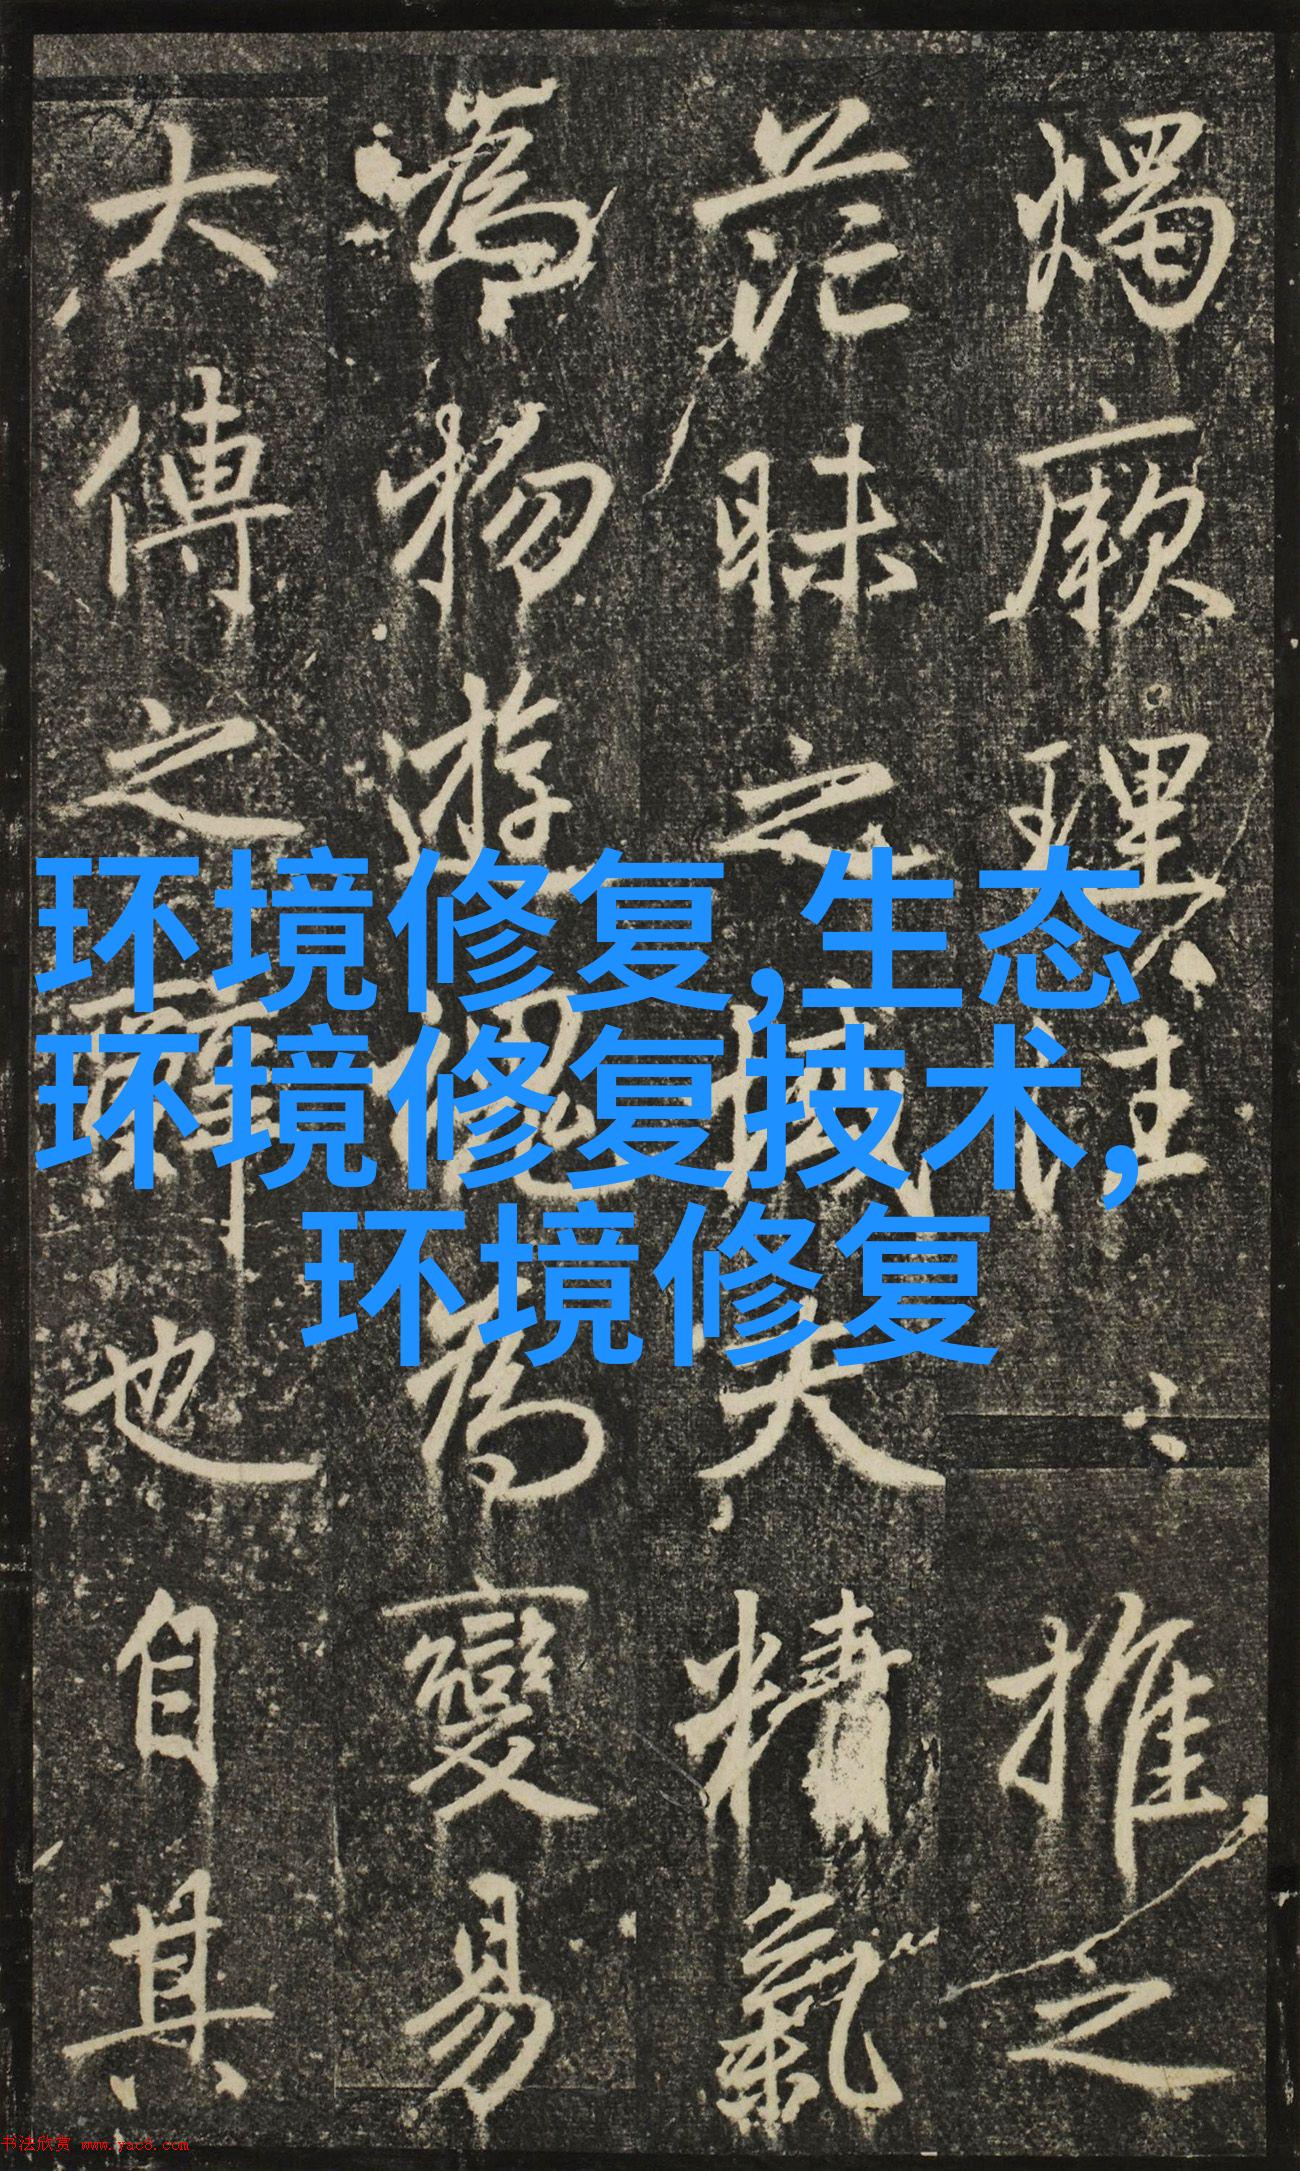 燭厥理推之
茫昧之域精氣
為物遊魂為變易
大傳之辭也自其
环境修复,生态
环境修复技术,
环境修复
书法欣赏 www.yac8.com